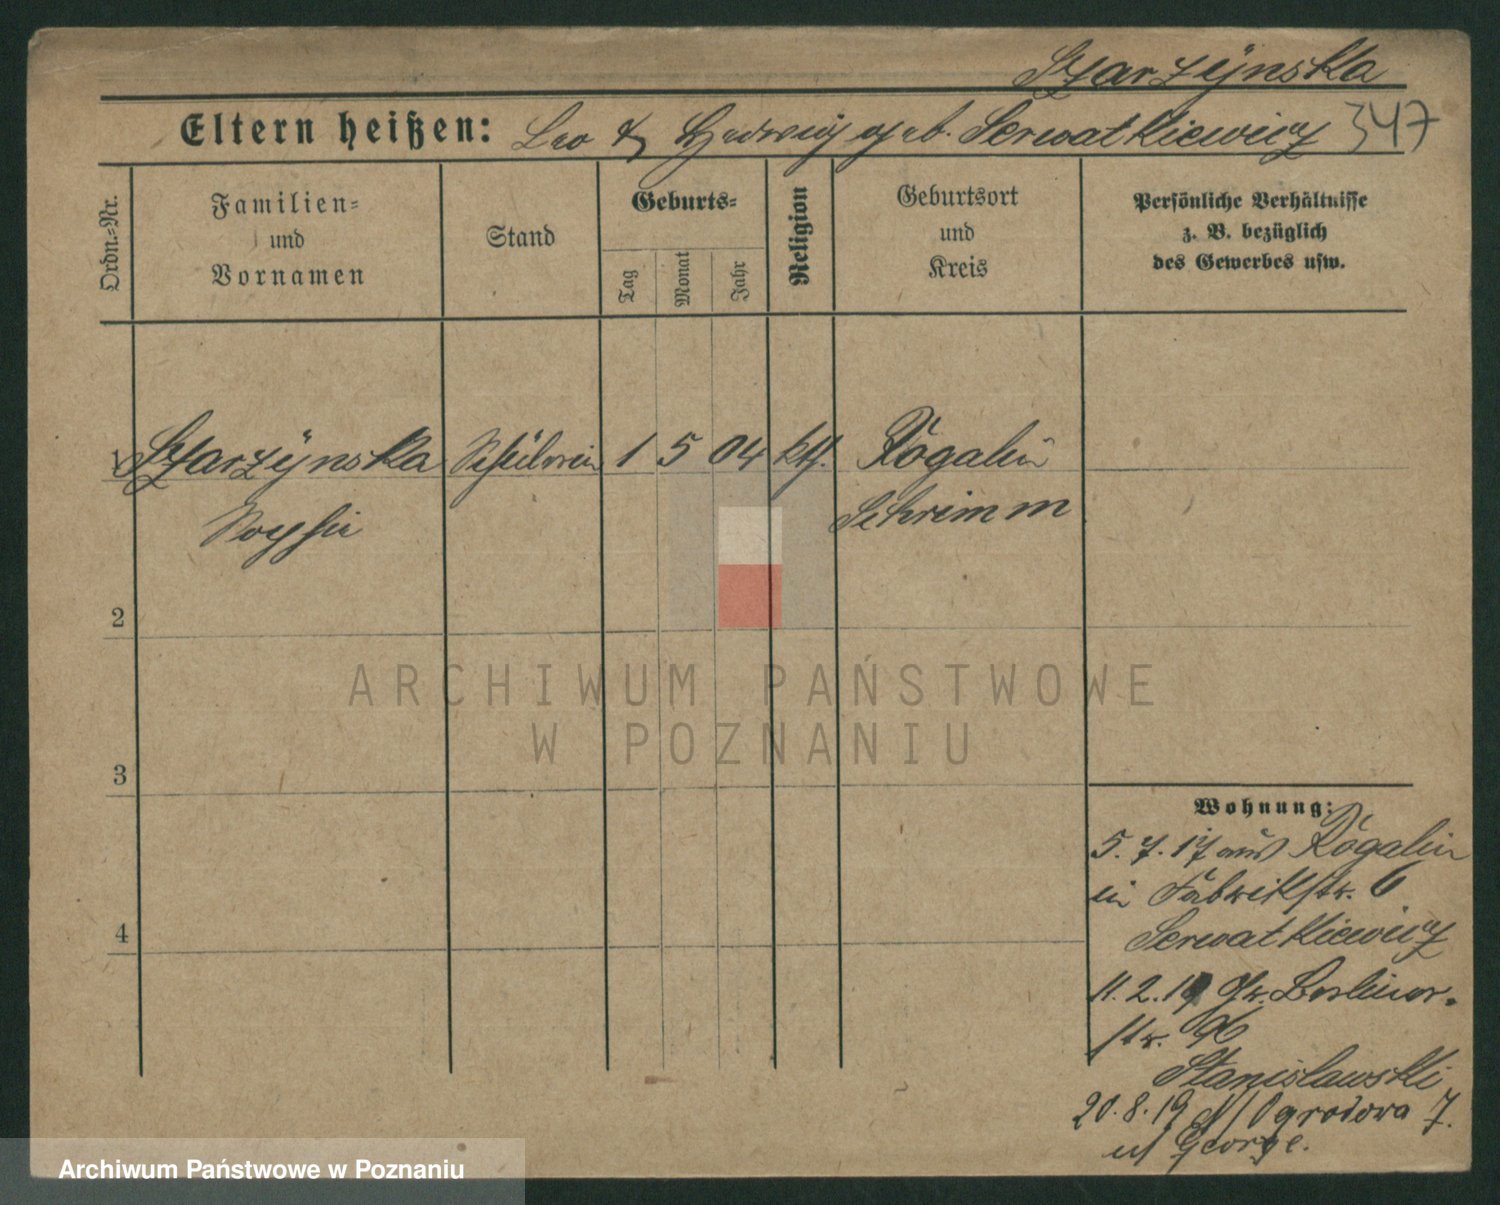 Szarzÿnska
Eltern heißen: Leo & Hedwig geb. Serwatkiewicz 347
Ordn.-Nr.
Familien-
und
Vornamen
Stand
Geburts-
Tag
Monat
Jahr
Religion
Geburtsort
und
Kreis
Persönliche Verhältnisse
z. B. bezüglich
des Gewerbes usw.
1 Szarzÿnska Schülerin 1 5 04 kth. Rogalin
Sophie Schrimm
2
3
4
ARCHIWUM PAŃSTWOWE
W POZNANIU
Wohnung:
5.7.17 aus Rogalin
in Fabrikstr. 6
Serwatkiewicz
11.2.19 Gr. Berliner-
str. 96
Stanislawski
20.8.19 Ogrodowa 7.
George.
Archiwum Państwowe w Poznaniu